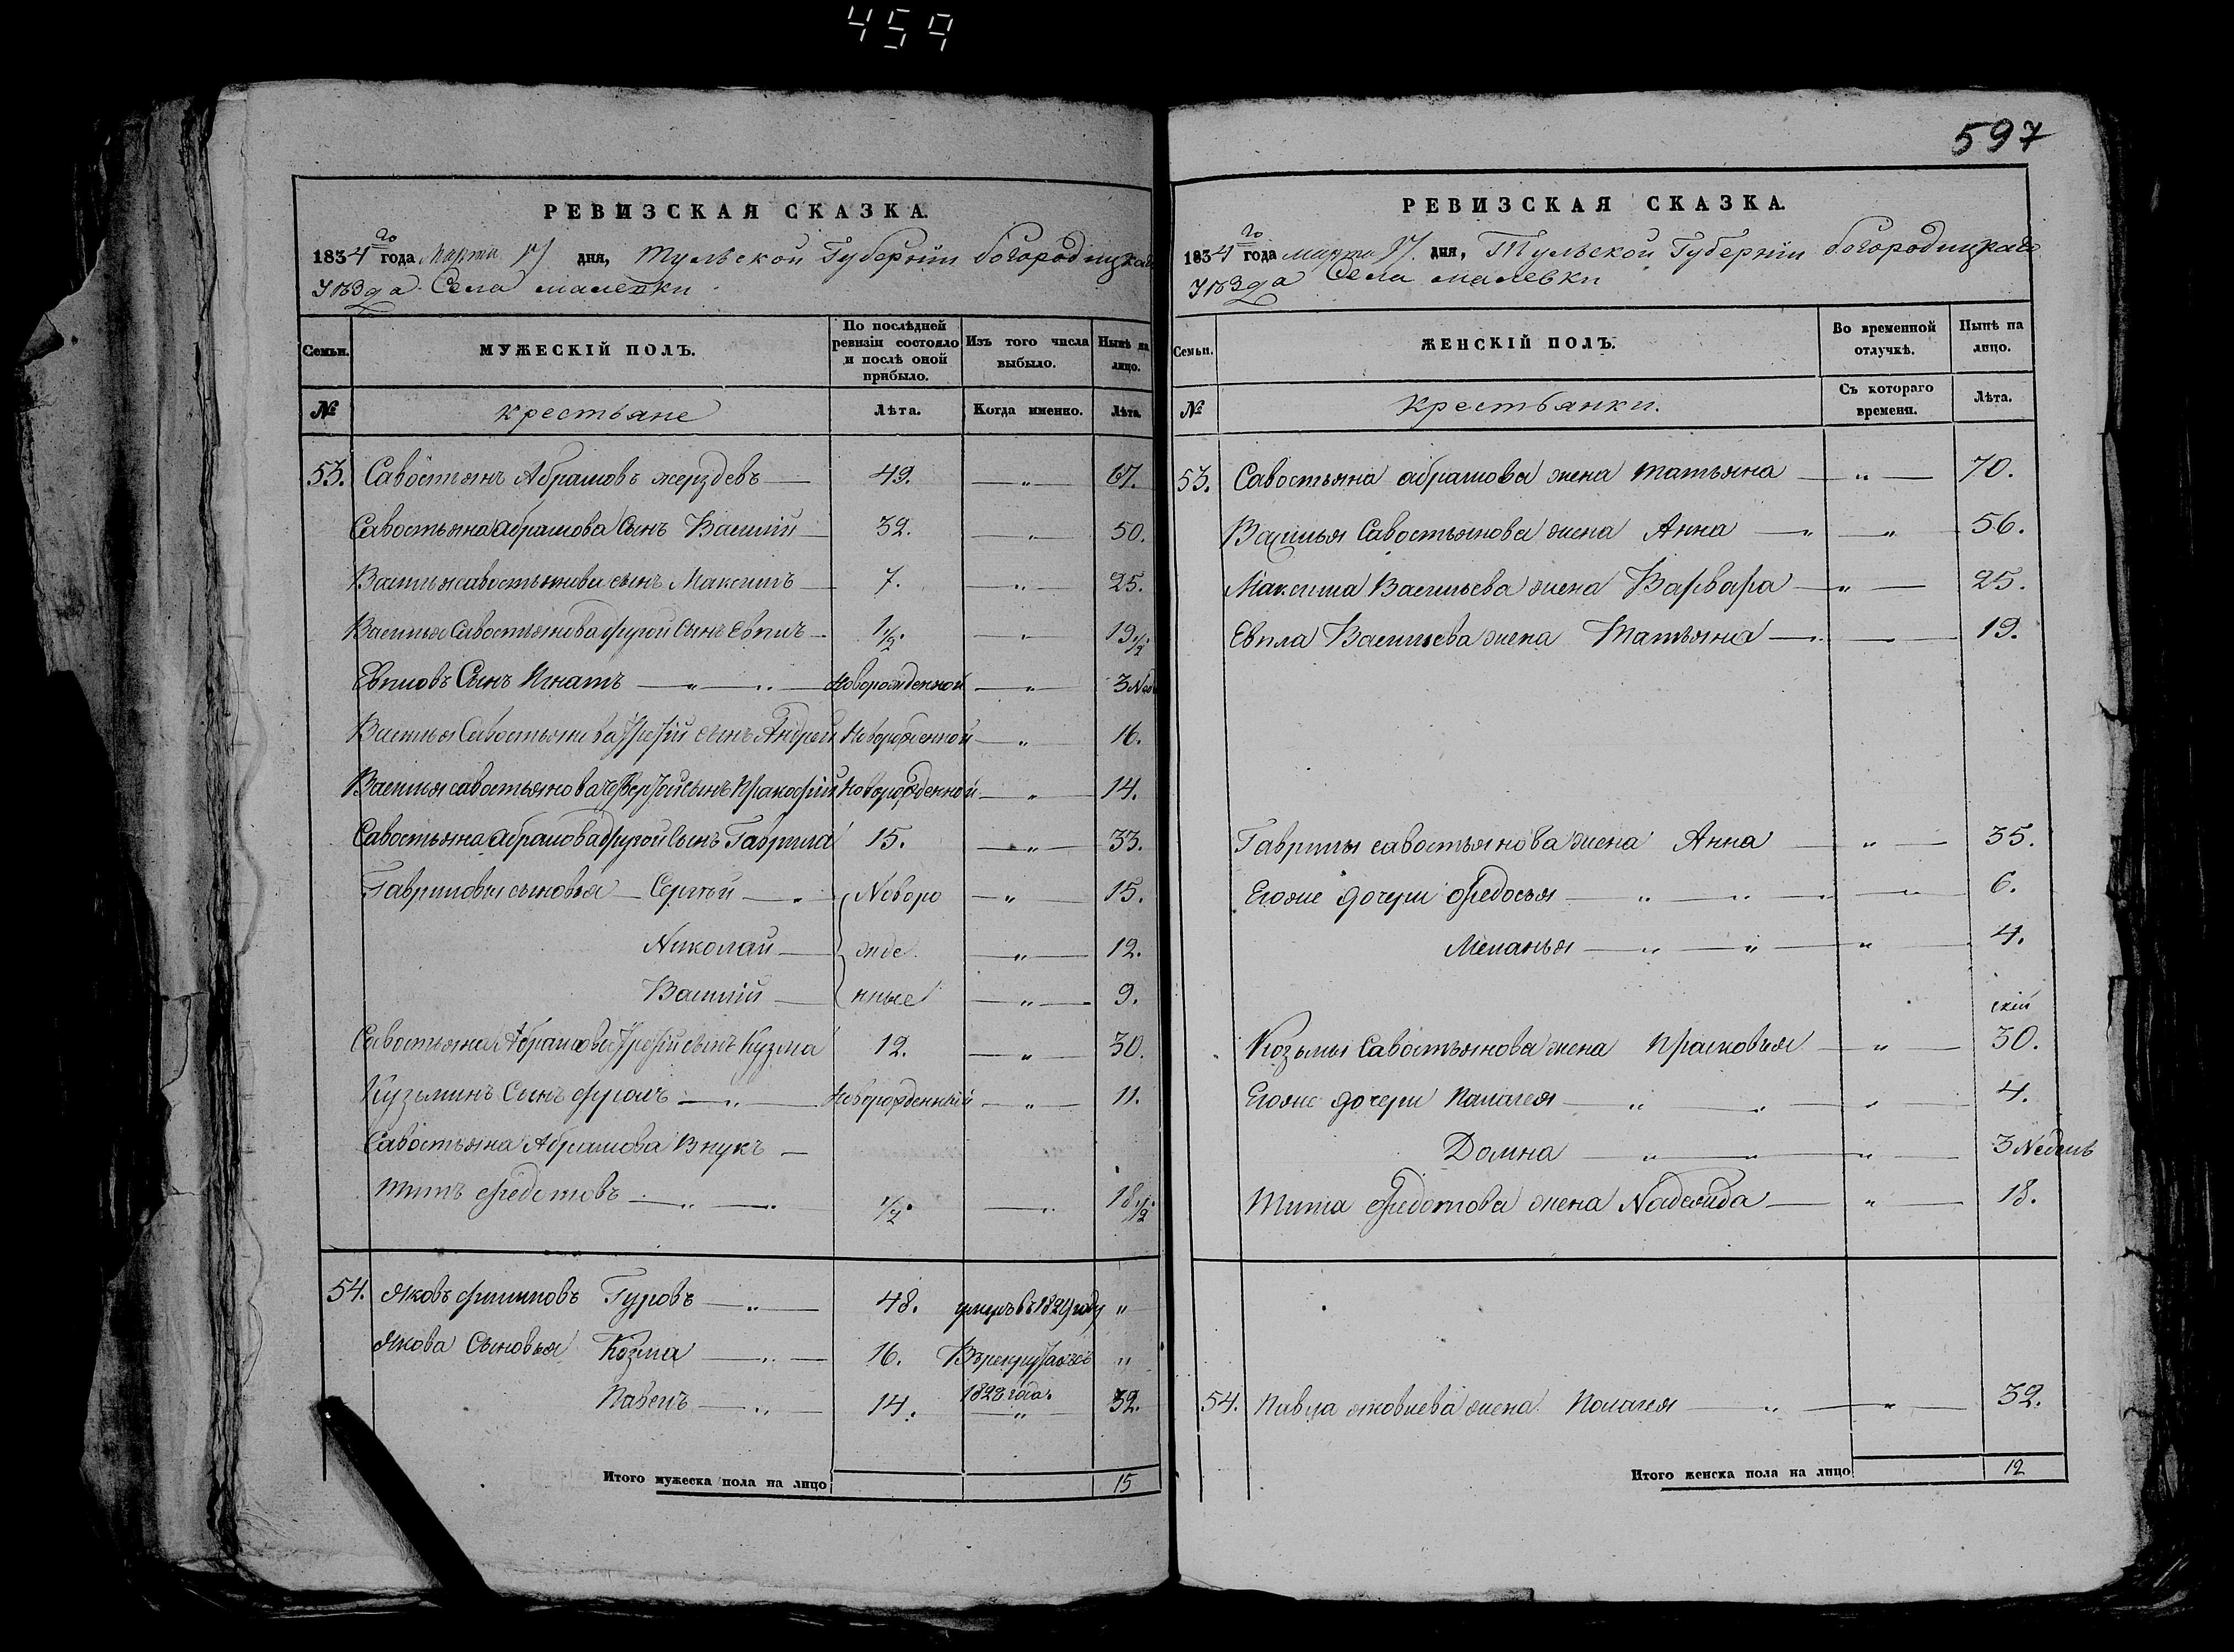 459
597
РЕВИЗСКАЯ СКАЗКА.
1834го года Марта 17 дня, Тульской Губерніи богородицкаго
уѣзда Села малевки
Семьи. МУЖЕСКІЙ ПОЛЪ. По послѣдней ревизіи состояло и послѣ оной прибыло. Изъ того числа выбыло. Нынѣ на лицо.
№ крестьяне Лѣта. Когда именно. Лѣта.
53. Савостьянъ Абрамовъ жерздевъ 49. — „ — 67.
Савостьяна абрамова Сынъ Василій 32. — „ — 50.
Василья савостьянова сынъ Максимъ 7. — „ — 25.
Василья Савостьянова другой Сынъ Евпилъ 1 1/2. — „ — 19 1/2
Евпловъ Сынъ Игнатъ — „ — „ — Новорожденной — „ — 3 Нед
Василья Савостьянова третій сынъ Андрей Новорожденной — „ — 16.
Василья савостьянова четвертой сынъ Пракофій новорожденной — „ — 14.
Савостьяна абрамова другой Сынъ Гаврила 15. — „ — 33.
Гавриловы сыновья — Сергѣй — „ Новоро — „ — 15.
Николай — жде — „ — 12.
Василій — нные — „ — 9.
Савостьяна Абрамова третій сынъ Кузма 12. — „ — 30.
Кузьминъ Сынъ фролъ — „ — Новорожденный — „ — 11.
Савостьяна Абрамова Внукъ —
Титъ Федотовъ — „ — „ 1/2. — „ 18 1/2
54. Яковъ филиповъ Гуровъ — „ — 48. умеръ въ 1829 году „
Якова Сыновья Козма — „ — 16. Въ рекрутахъ съ „
1828 года
Павелъ — „ — 14. — „ — 32.
Итого мужеска пола на лицо 15
РЕВИЗСКАЯ СКАЗКА.
1834го года марта 17. дня, Тульской Губерніи богородицкаго
уѣзда Села малевки
Семьи. ЖЕНСКІЙ ПОЛЪ. Во временной отлучкѣ. Нынѣ на лицо.
№ Крестьянки. Съ котораго времени. Лѣта.
53. Савостьяна абрамова жена татьяна — „ — 70.
Василья Савостьянова жена Анна — „ — „ — 56.
Максима Васильева жена Варвара — „ — 25.
Евпла Васильева жена Татьяна — „ — 19.
Гаврилы савостьянова жена Анна — „ — 35.
Егоже дочери Федосья — „ — „ — „ — 6.
Меланья — „ — „ — „ — 4.
Козьмы Савостьянова жена Прасковья — „ — 30.
Егоже дочери Палагея — „ — „ — „ — 4.
Домна — „ — „ — „ — 3 Недель
Тита Федотова жена Надежда — „ — 18.
54. Павла яковлева жена Полагея — „ — „ — 32.
Итого женска пола на лицо 12